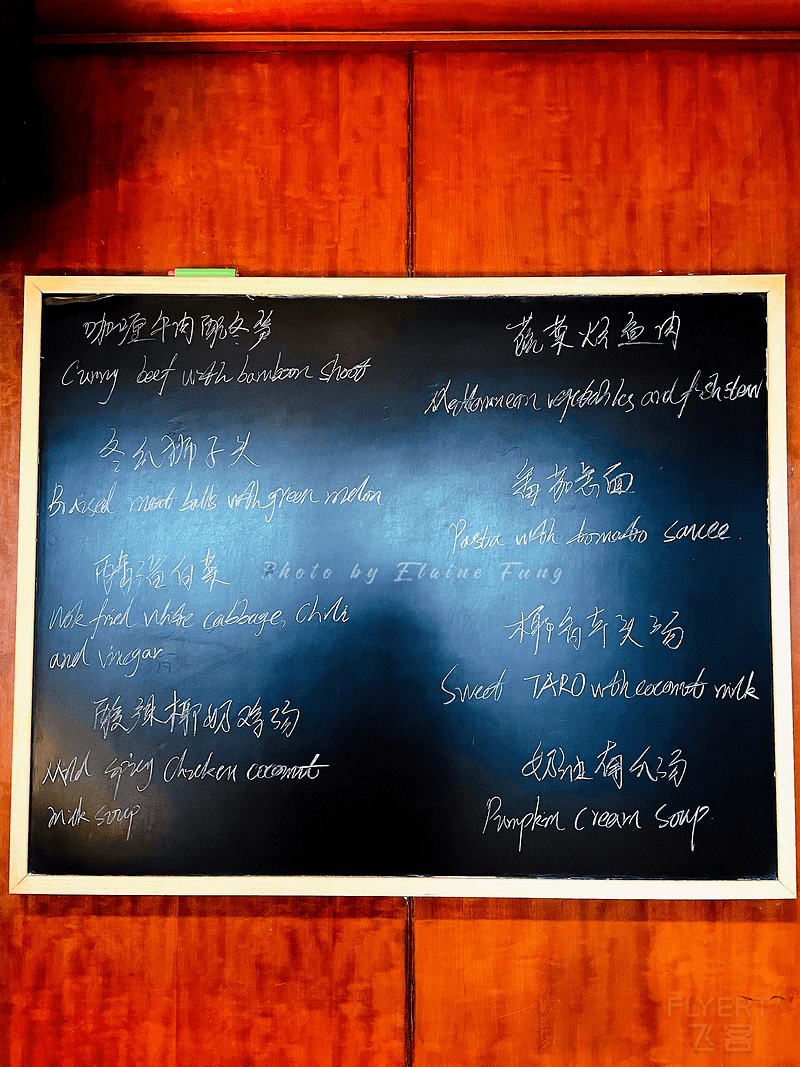 咖喱牛肉配冬笋
Curry beef with bamboon shoot
冬瓜狮子头
Braised meat balls with green melon
醋溜白菜
Wok fried white cabbage, Chili
and vinegar
酸辣椰奶鸡汤
Mild spicy Chicken coconut
milk soup
蔬菜烩鱼肉
Mediterranean vegetables and fish stew
番茄意面
Pasta with tomato sauce.
椰香芋头汤
Sweet TARO with coconut milk
奶油南瓜汤
Pumpkin Cream Soup.
Photo by Elaine Fung
FLYERT
飞客